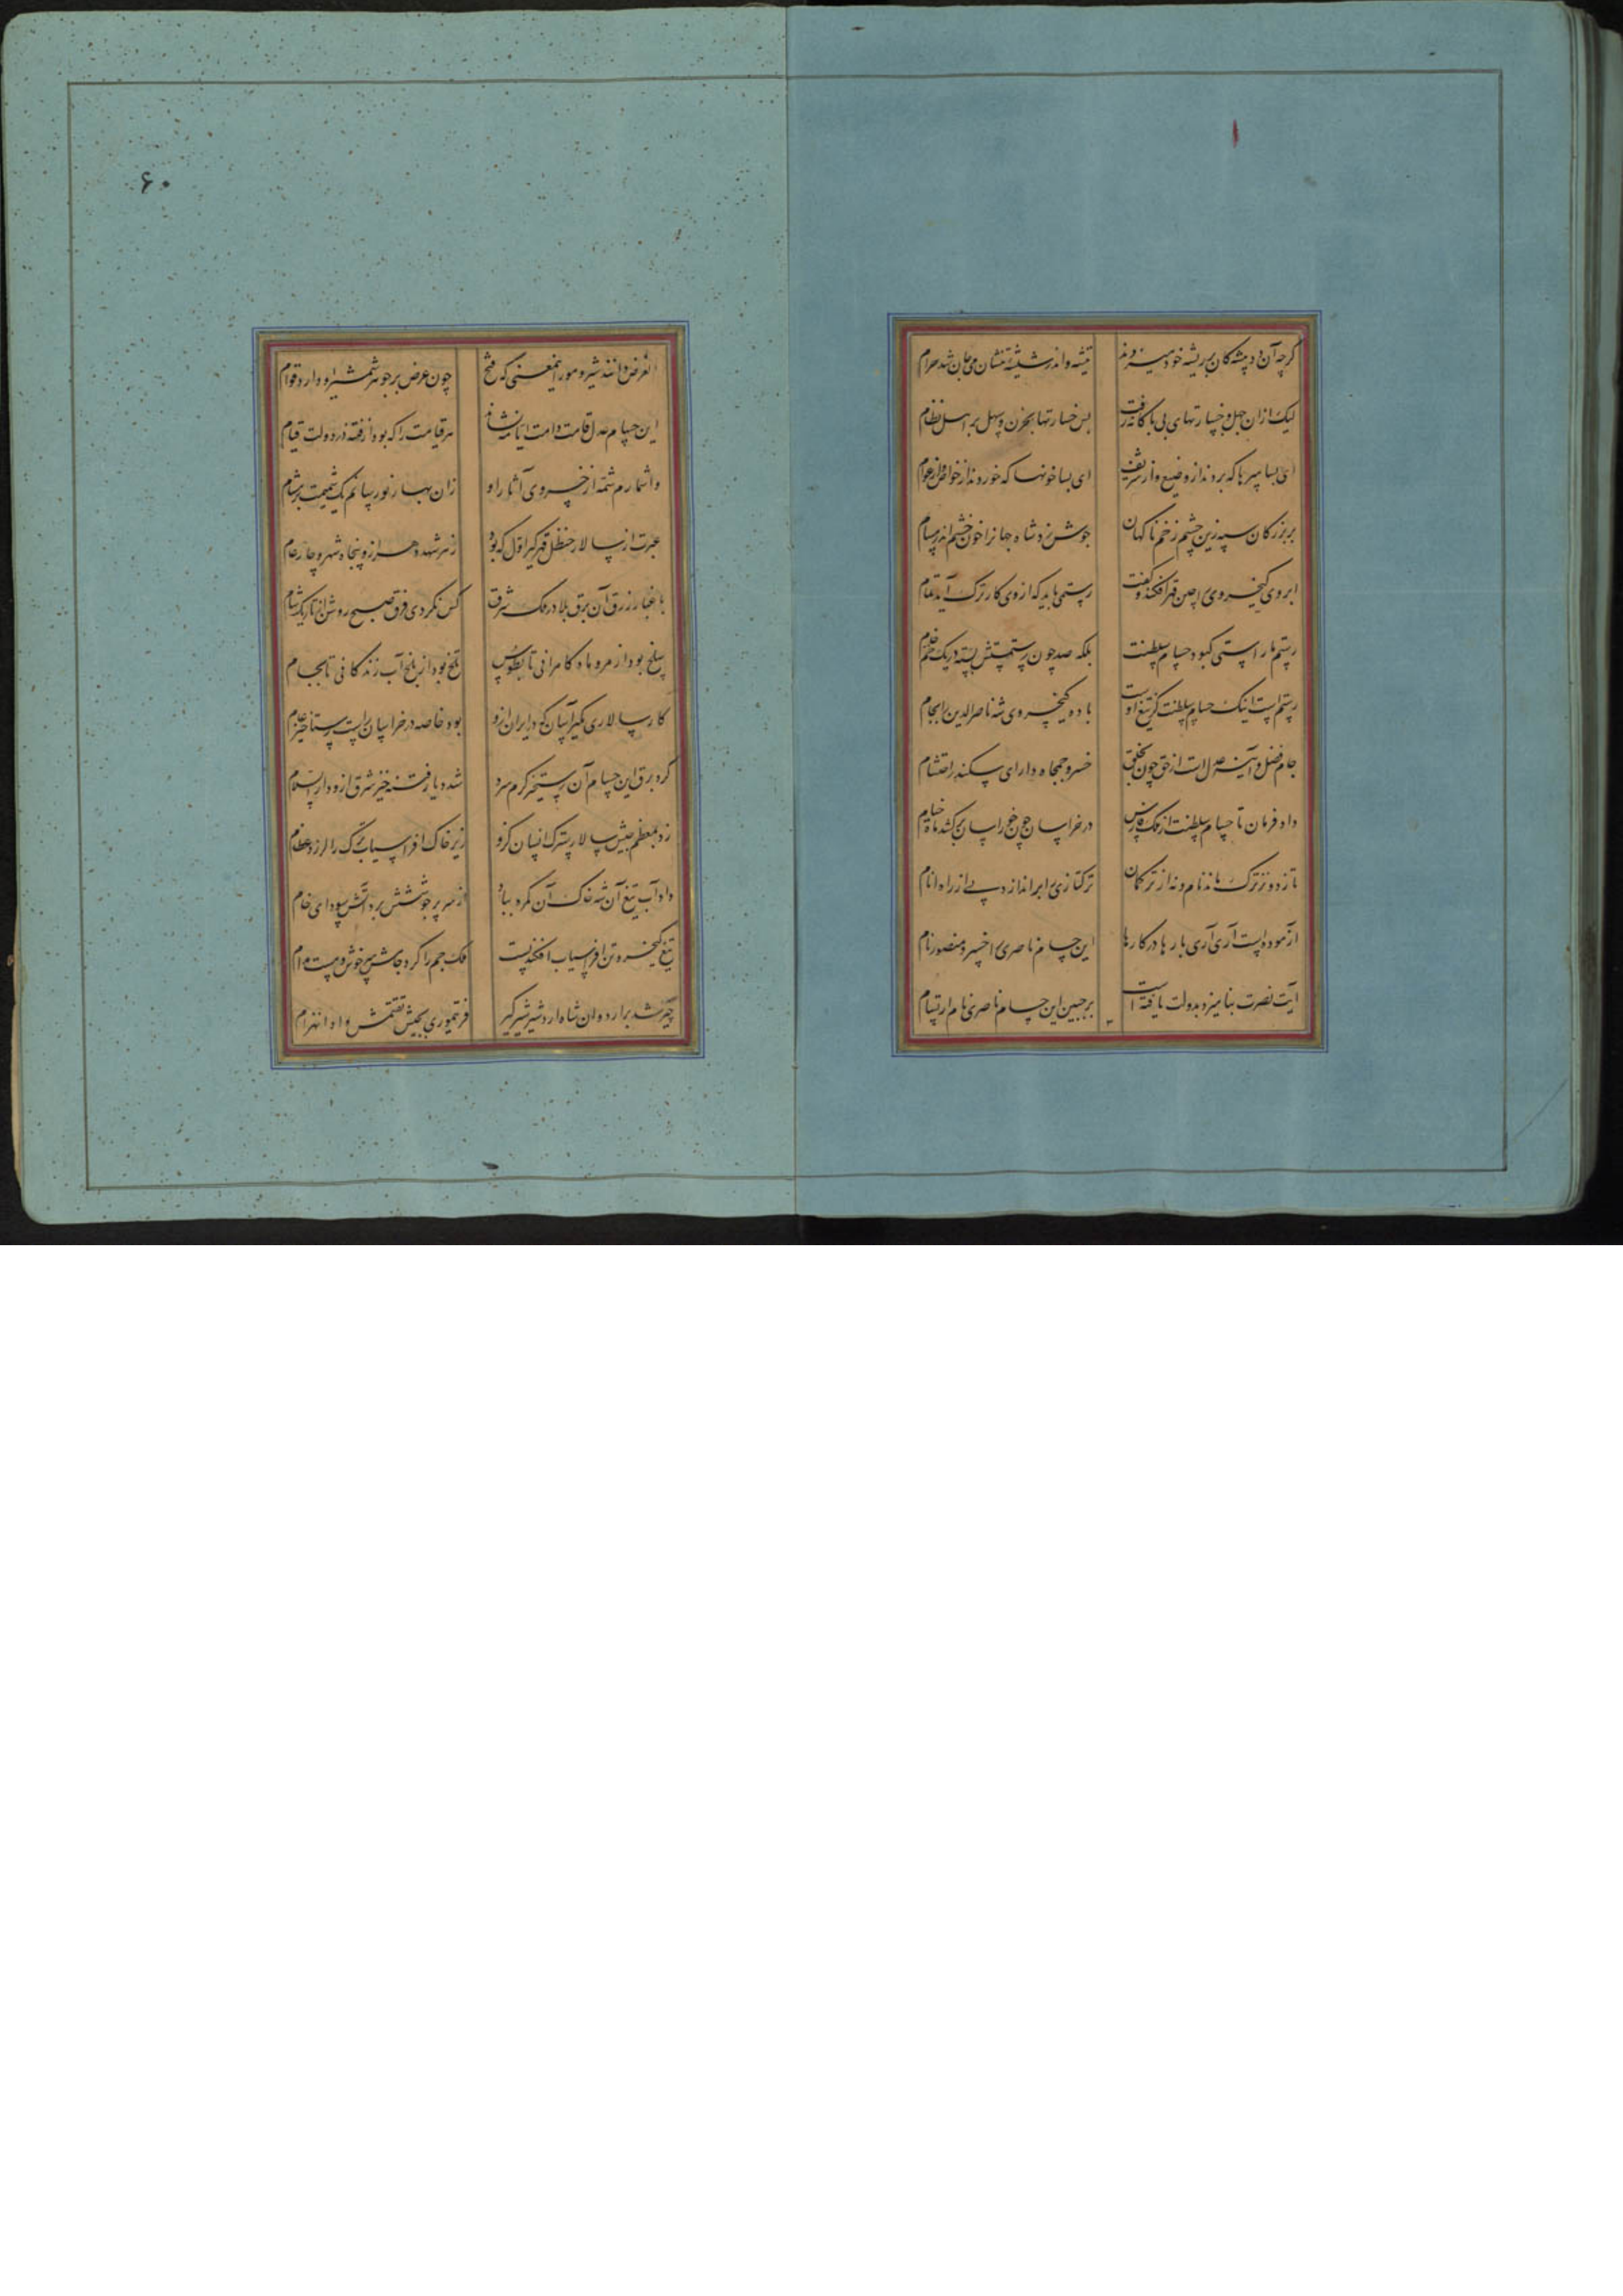 گرچه آن دد پیشه کان بر ریشه خود میزدند
تیشه و اندر شیشه تنشان می جان شد حرام
لیک از ان جهل و جسارتهای بی باکانه رفت
بس خسارتها بحزن و سهل بر اهل نظام
ای بسا سرها که بردند از وضیع و از شریف
ای بسا خونها که خوردند از خواص و از عوام
بر بزرگان سپه زین چشم زخم ناگهان
جوش زد شاه جهانرا خون خشم اندر مسام
ابروی کیخسروی را چین قهر افکند و گفت
رستمی باید که از وی کار ترک آید تمام
رستم ما راستی که بود حسام سلطنت
بلکه صد چون رستمستش بسته در یک خم خام
رستم است اینک حسام سلطنت کز تیغ اوست
باده کیخسروی شه ناصرالدین را بجام
جام فضل و آینه عدل است از حق چون بخلق
خسرو جمجاه دارای سکندر احتشام
داد فرمان تا حسام سلطنت از ملک فارس
در خراسان چون خور آسان برکشد ماه خیام
تا زدوزد ترک ماند نام و نه از ترکمان
ترکتازی را براندازد پی از راه انام
آزموده است آری آری بارها در کارها
این حسام ناصری را خسرو منصور نام
آیت نصرت بنامیزد بدولت یافته است
بر جبین این حسام ناصری نام ارتسام
الغرض دانند شیر و مور اینمعنی که فتح
چون عرض بر جوهر شمشیر او دارد قوام
این حسام عدل قامت دامت ایامه نشاند
هر قیامت را که بود از فتنه در دولت قیام
واشمارم شمه از خسروی آثار او
زان بهار نور رسانم یک شمیمت بر مشام
عبرت از سالار حنظل قهر گیر اول که بود
زهر شهد ده هزار و پنجاه شهر و چار عام
با غبار زرق آن برق بلا در ملک شرق
کس نکردی فرق صبح روشن از تاریک شام
سلخ بود از مرو ماه کامرانی تا بطوس
تلخ بود از بلخ آب زندگانی تا بجام
کار سالاری مگیر آسان که در ایران ازو
بود خاصه در خراسان راست رستاخیز عام
کرد برق این حسام آن رستخیز گرم سرد
شد دیار فتنه خیز شرق ازو دار السلام
زد بمعظم جیش سالار سترک انسان کزو
زیر خاک افراسیاب ترک را لرزد عظام
داد آب تیغ آن شه خاک آن گمره بباد
از سر پر جوششش برد آتش سودای خام
تیغ کیخسرو تن افراسیاب افکند پست
ملک جم را کرد جامش می خوش و مست مدام
چیر شد بر اردوان شاه اردشیر شیر گیر
فر تیموری بجیش تقتمش داد انهزام
۶۰